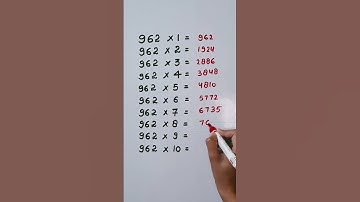 962 × 1 = 962
962 × 2 = 1924
962 × 3 = 2886
962 × 4 = 3848
962 × 5 = 4810
962 × 6 = 5772
962 × 7 = 6735
962 × 8 = 76
962 × 9 =
962 × 10 =